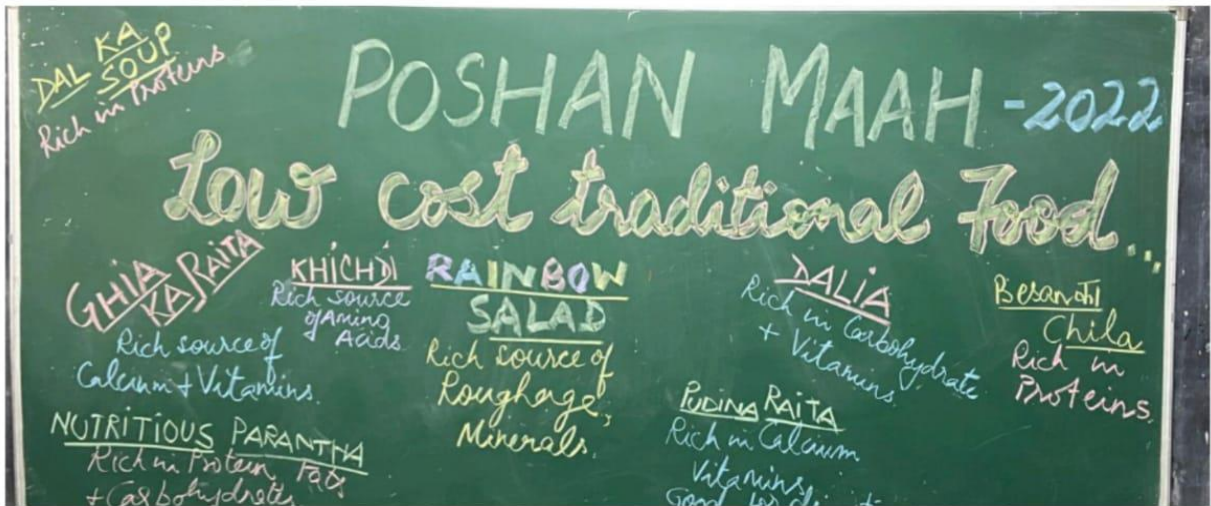 DAL KA
SOUP
Rich in Proteins
POSHAN MAAH -2022
Low cost traditional Food...
GHIA
KA RAITA
Rich source of
Calcium + Vitamins.
KHICHDI
Rich source
of Amino
Acids
RAINBOW
SALAD
Rich source of
Roughage,
Minerals.
DALIA
Rich in Carbohydrate
+ Vitamins.
Chila
Rich in
Proteins.
NUTRITIOUS PARANTHA
Rich in Protein, Fats
+ Carbohydrates
PUDINA RAITA
Rich in Calcium
Vitamins,
Good for